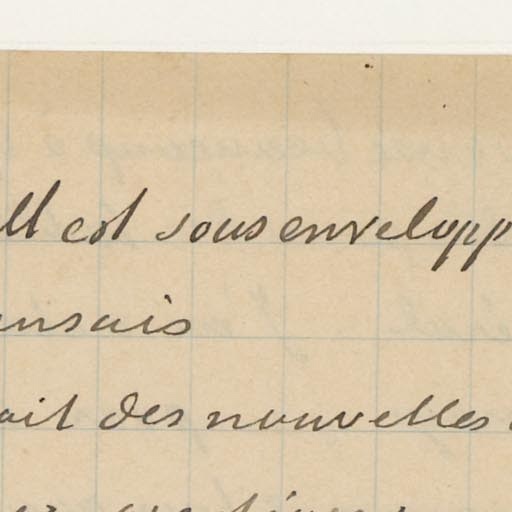 ll est sous envelopp
ansais
ait des nouvelles